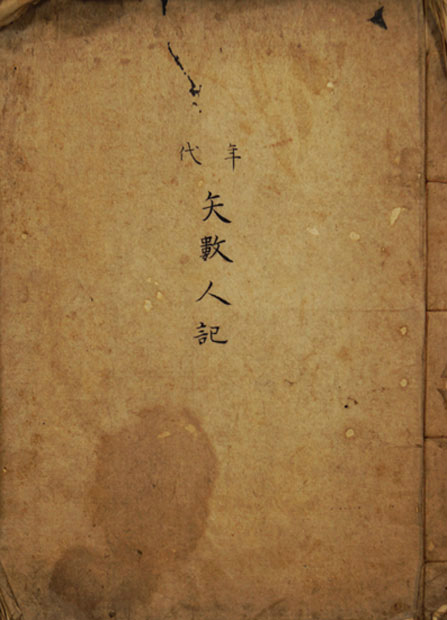 年代
矢數人記